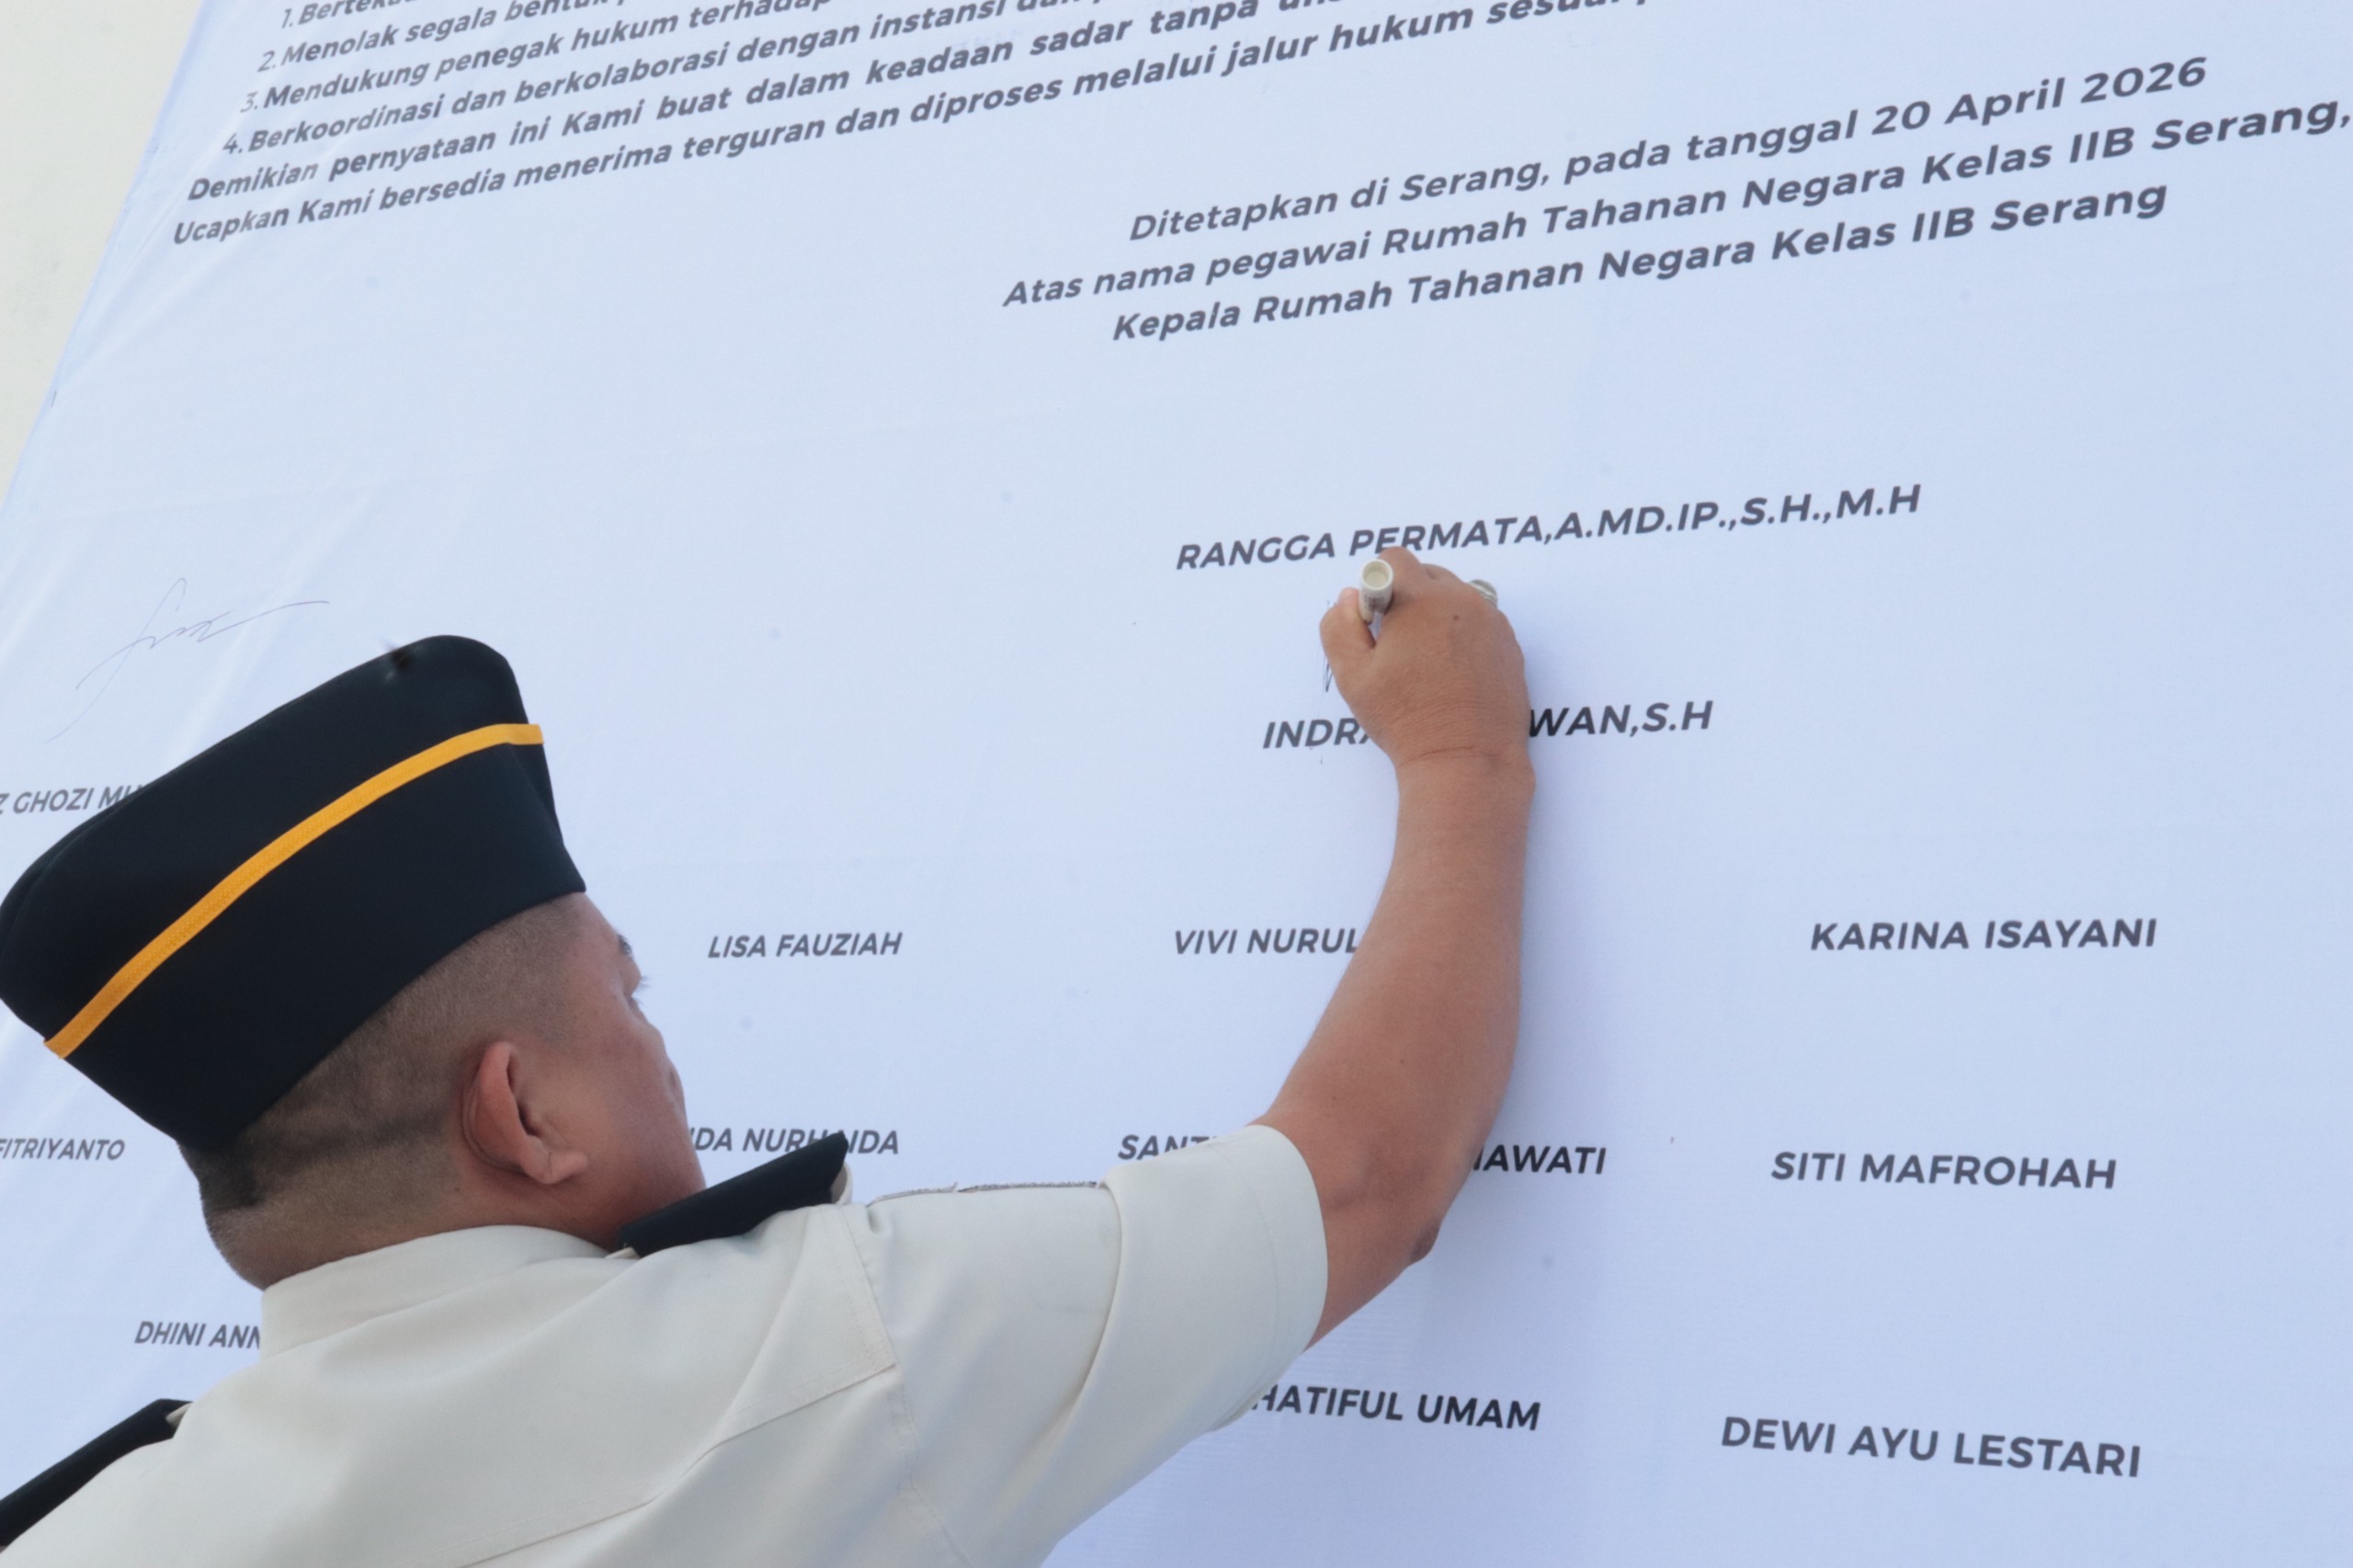 2. Menolak segala
3. Mendukung penegak hukum terhadap
4. Berkoordinasi dan berkolaborasi dengan instansi
Demikian pernyataan ini Kami buat dalam keadaan sadar tanpa
Ucapkan Kami bersedia menerima terguran dan diproses melalui jalur hukum
Ditetapkan di Serang, pada tanggal 20 April 2026
Atas nama pegawai Rumah Tahanan Negara Kelas IIB Serang,
Kepala Rumah Tahanan Negara Kelas IIB Serang
RANGGA PERMATA,A.MD.IP.,S.H.,M.H
S.H
GHOZI
LISA FAUZIAH
VIVI NURUL
KARINA ISAYANI
FITRIYANTO
SITI MAFROHAH
DHINI
UMAM
DEWI AYU LESTARI